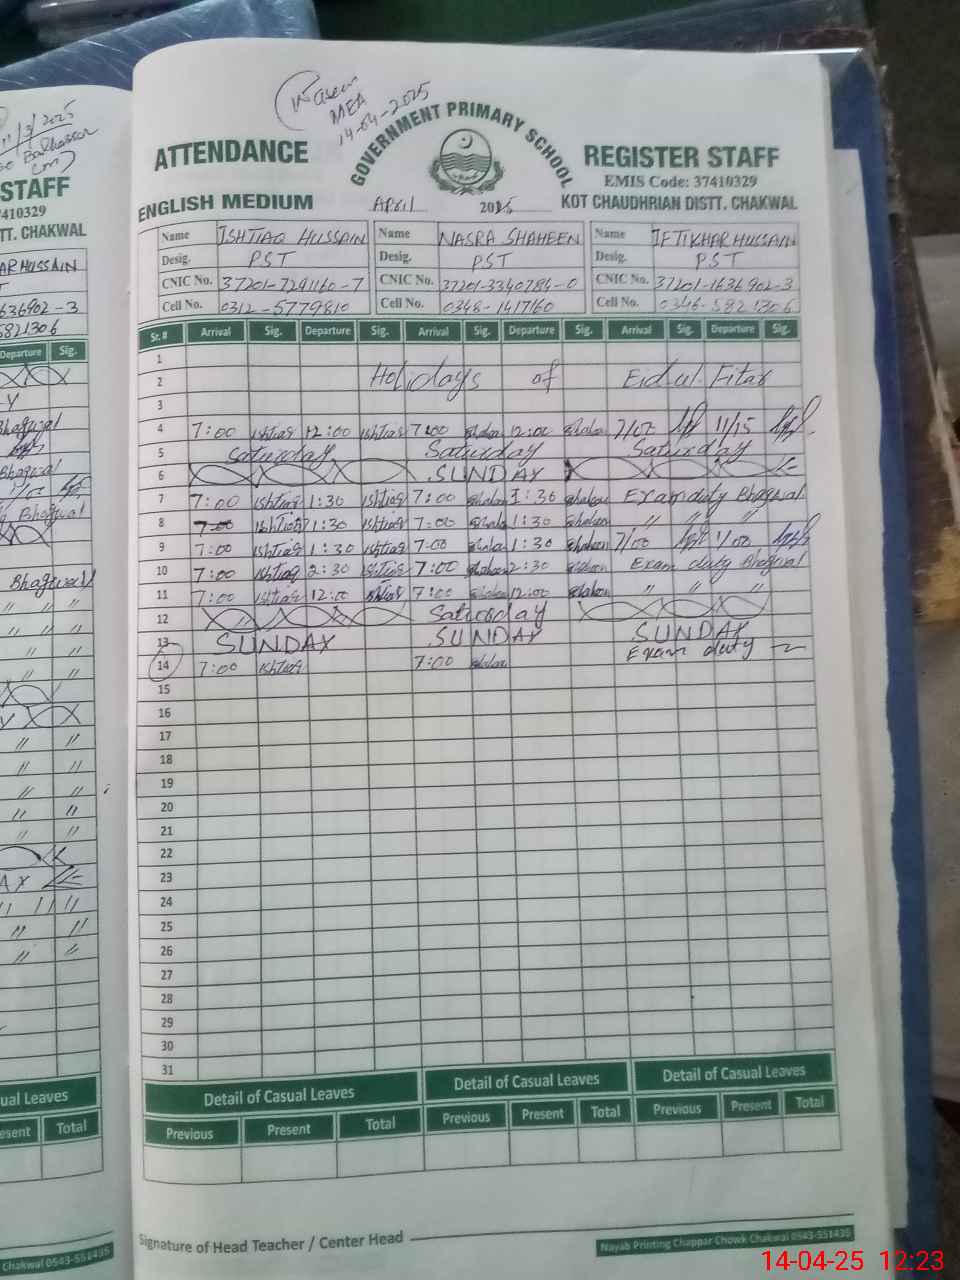 11/3/2025
STAFF
7410329
TT. CHAKWAL
AR HUSSAIN
T
636902-3
5821306
Departure Sig.
Bhagwal
Bhagwal
Bhagwal
Bhagwal
〃 〃 〃
〃 〃 〃
〃 〃
〃 〃
〃 〃
〃 〃
〃 〃
〃 〃
〃 〃
〃 〃
〃 〃
ual Leaves
esent Total
Chakwal 0543-551435
Naseem
MEA
14-04-2025
ATTENDANCE GOVERNMENT PRIMARY SCHOOL REGISTER STAFF
EMIS Code: 37410329
ENGLISH MEDIUM APril 2025 KOT CHAUDHRIAN DISTT. CHAKWAL
Name ISHTIAQ HUSSAIN Name NASRA SHAHEEN Name IFTIKHAR HUSSAIN
Desig. PST Desig. PST Desig. PST
CNIC No. 37201-7291160-7 CNIC No. 37201-3340784-0 CNIC No. 37201-1636902-3
Cell No. 0312-5779810 Cell No. 0348-1417160 Cell No. 0346-5821306
Sr. # Arrival Sig. Departure Sig. Arrival Sig. Departure Sig. Arrival Sig. Departure Sig.
1
2 Holidays of Eid ul Fitar
3
4 7:00 Ishtiaq 12:00 Ishtiaq 7:00 Shaheen 12:00 Shaheen 7/00 11/15
5 Saturday Saturday Saturday
6 SUNDAY
7 7:00 Ishtiaq 1:30 Ishtiaq 7:00 Shaheen 1:30 Shaheen Exam duty Bhagwal
8 7:00 Ishtiaq 1:30 Ishtiaq 7:00 Shaheen 1:30 Shaheen 〃 〃 〃
9 7:00 Ishtiaq 1:30 Ishtiaq 7:00 Shaheen 1:30 Shaheen 7/00 1/00
10 7:00 Ishtiaq 2:30 Ishtiaq 7:00 Shaheen 2:30 Shaheen Exam duty Bhagwal
11 7:00 Ishtiaq 12:00 Ishtiaq 7:00 Shaheen 12:00 Shaheen 〃 〃 〃
12 Saturday
13 SUNDAY SUNDAY SUNDAY
14 7:00 Ishtiaq 7:00 Shaheen Exam duty
15
16
17
18
19
20
21
22
23
24
25
26
27
28
29
30
31
Detail of Casual Leaves Detail of Casual Leaves Detail of Casual Leaves
Previous Present Total Previous Present Total Previous Present Total
Signature of Head Teacher / Center Head
Nayab Printing Chappar Chowk Chakwal 0543-551435
14-04-25 12:23